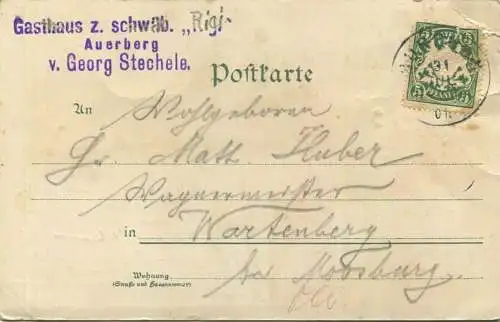 Gasthaus z. schwäb. „Rigi"
Auerberg
v. Georg Stechele.
Postkarte
An Wohlgeboren
Hr. Math. Huber
Wagnermeister
in Wartenberg
bei Moosburg
Wohnung
(Straße und Hausnummer)
5 5
01